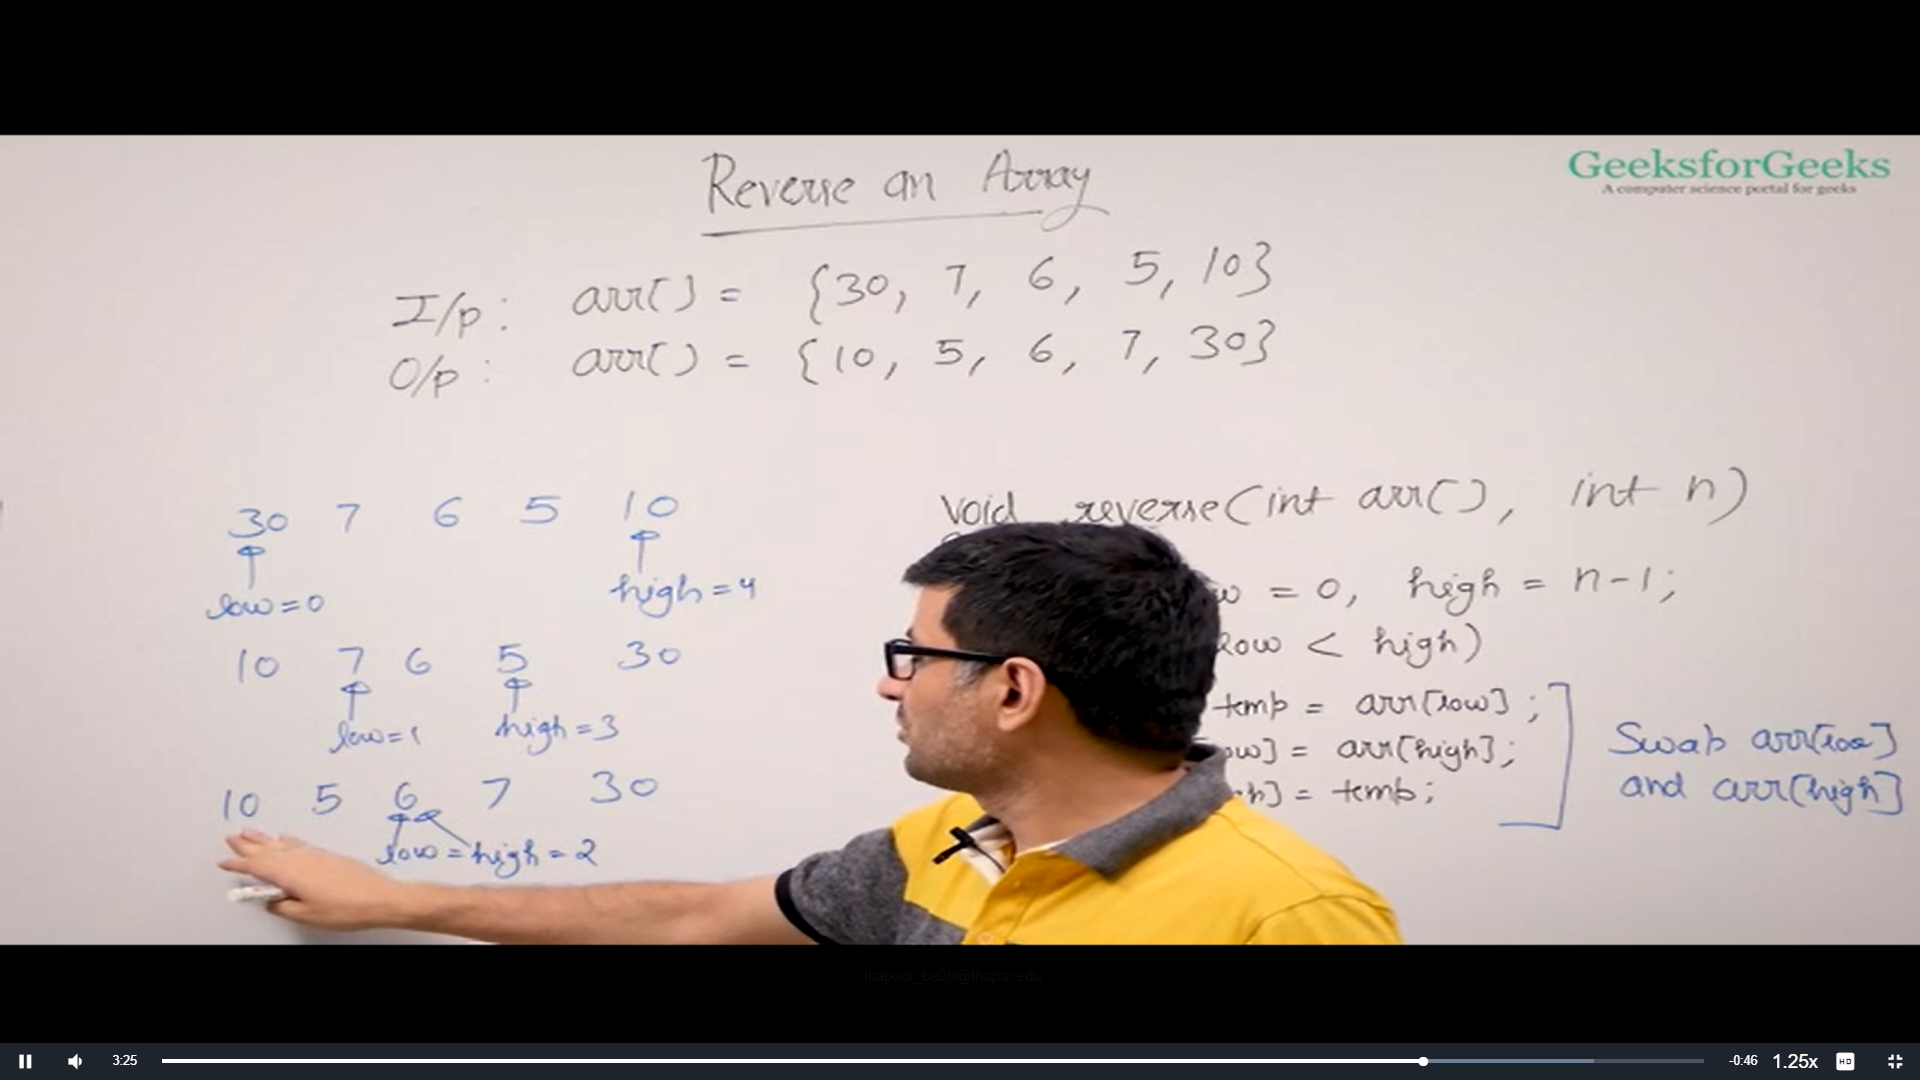 Reverse an Array
GeeksforGeeks
A computer science portal for geeks
I/p: arr[] = {30, 7, 6, 5, 10}
O/p: arr[] = {10, 5, 6, 7, 30}
30 7 6 5 10
low=0 high=4
10 7 6 5 30
low=1 high=3
10 5 6 7 30
low=high=2
void reverse(int arr[], int n)
= 0, high = n-1;
low < high)
temp = arr[low];
ow] = arr[high];
h] = temp;
Swap arr[low]
and arr[high]
tkapoor_be20@thapar.edu
3:25
-0:46
1.25x
HD